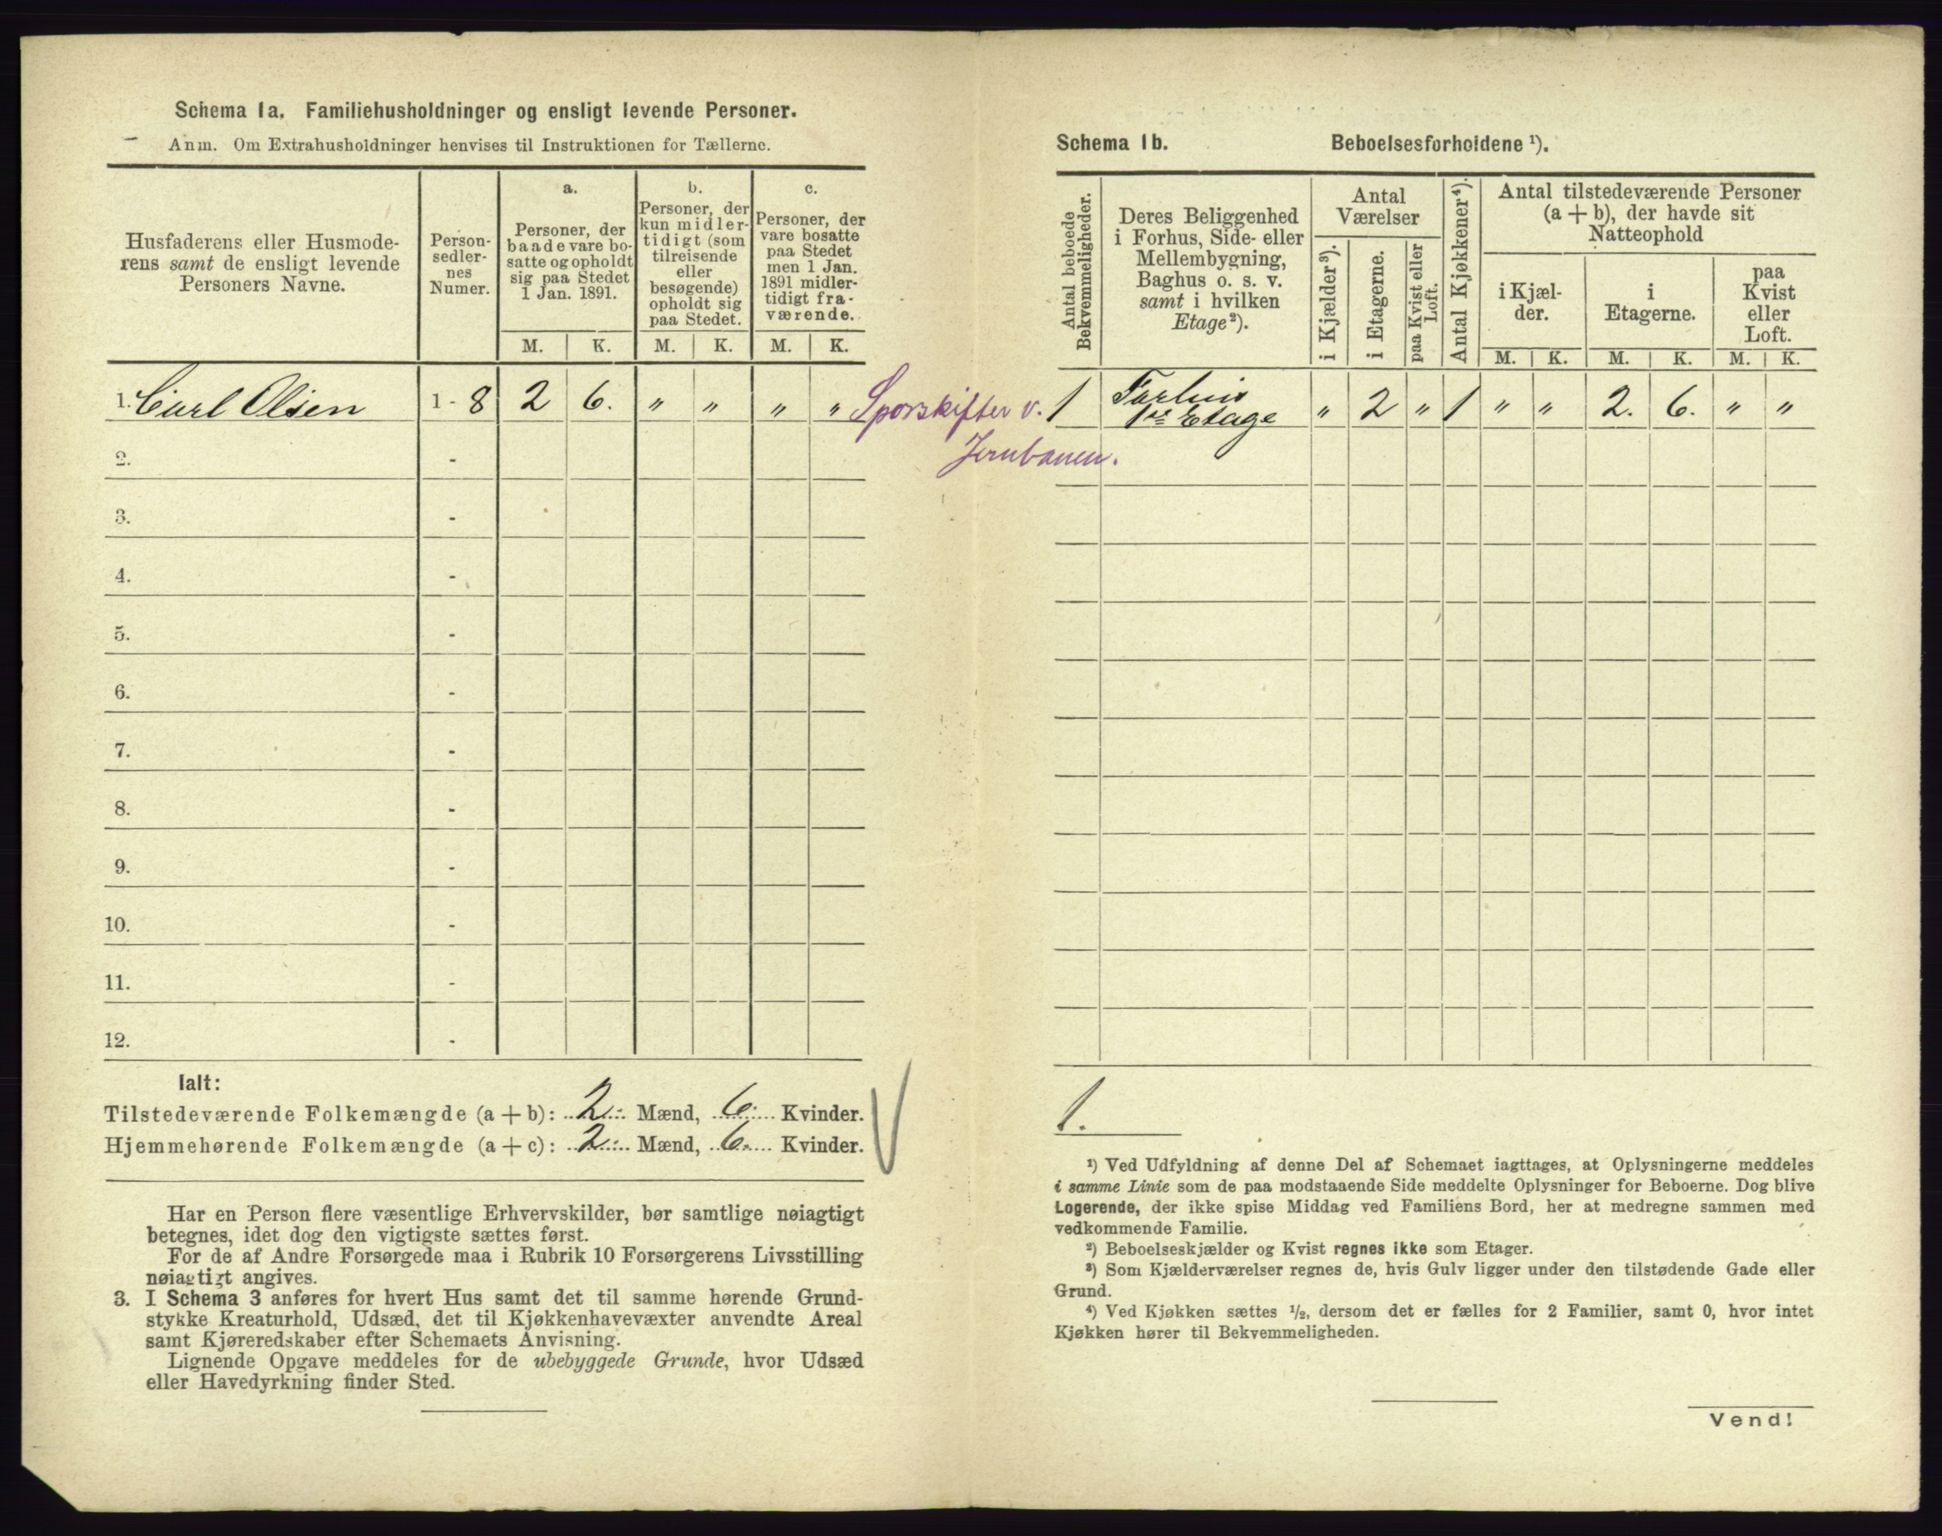 Schema 1a. Familiehusholdninger og ensligt levende Personer.
Anm. Om Extrahusholdninger henvises til Instruktionen for Tællerne.
Husfaderens eller Husmode-
rens samt de ensligt levende
Personers Navne.
Person-
sedler-
nes
Numer.
a.
Personer, der
baade vare bo-
satte og opholdt
sig paa Stedet
1 Jan. 1891.
b.
Personer, der
kun midler-
tidigt (som
tilreisende
eller
besøgende)
opholdt sig
paa Stedet.
c.
Personer, der
vare bosatte
paa Stedet
men 1 Jan.
1891 midler-
tidigt fra-
værende.
M. K. M. K. M. K.
1. Carl Olsen 1 - 8 2 6. „ „ „ „ Sporskifter v.
Jernbanen.
2. -
3. -
4. -
5. -
6. -
7. -
8. -
9. -
10. -
11. -
12. -
Ialt:
Tilstedeværende Folkemængde (a + b): 2 Mænd, 6 Kvinder.
Hjemmehørende Folkemængde (a + c): 2 Mænd, 6 Kvinder.
Har en Person flere væsentlige Erhvervskilder, bør samtlige nøiagtigt
betegnes, idet dog den vigtigste sættes først.
For de af Andre Forsørgede maa i Rubrik 10 Forsørgerens Livsstilling
nøiagtigt angives.
3. I Schema 3 anføres for hvert Hus samt det til samme hørende Grund-
stykke Kreaturhold, Udsæd, det til Kjøkkenhavevæxter anvendte Areal
samt Kjøreredskaber efter Schemaets Anvisning.
Lignende Opgave meddeles for de ubebyggede Grunde, hvor Udsæd
eller Havedyrkning finder Sted.
Schema 1b. Beboelsesforholdene ¹).
Antal beboede
Bekvemmeligheder.
Deres Beliggenhed
i Forhus, Side- eller
Mellembygning,
Baghus o. s. v.
samt i hvilken
Etage²).
Antal
Værelser
i Kjælder³).
i Etagerne.
paa Kvist eller
Loft.
Antal Kjøkkener⁴).
Antal tilstedeværende Personer
(a + b), der havde sit
Natteophold
i Kjæl-
der.
i
Etagerne.
paa
Kvist
eller
Loft.
M. K. M. K. M. K.
1 Forhus
1ste Etage „ 2 „ 1 „ „ 2. 6. „ „
1.
¹) Ved Udfyldning af denne Del af Schemaet iagttages, at Oplysningerne meddeles
i samme Linie som de paa modstaaende Side meddelte Oplysninger for Beboerne. Dog blive
Logerende, der ikke spise Middag ved Familiens Bord, her at medregne sammen med
vedkommende Familie.
²) Beboelseskjælder og Kvist regnes ikke som Etager.
³) Som Kjælderværelser regnes de, hvis Gulv ligger under den tilstødende Gade eller
Grund.
⁴) Ved Kjøkken sættes ½, dersom det er fælles for 2 Familier, samt 0, hvor intet
Kjøkken hører til Bekvemmeligheden.
Vend!